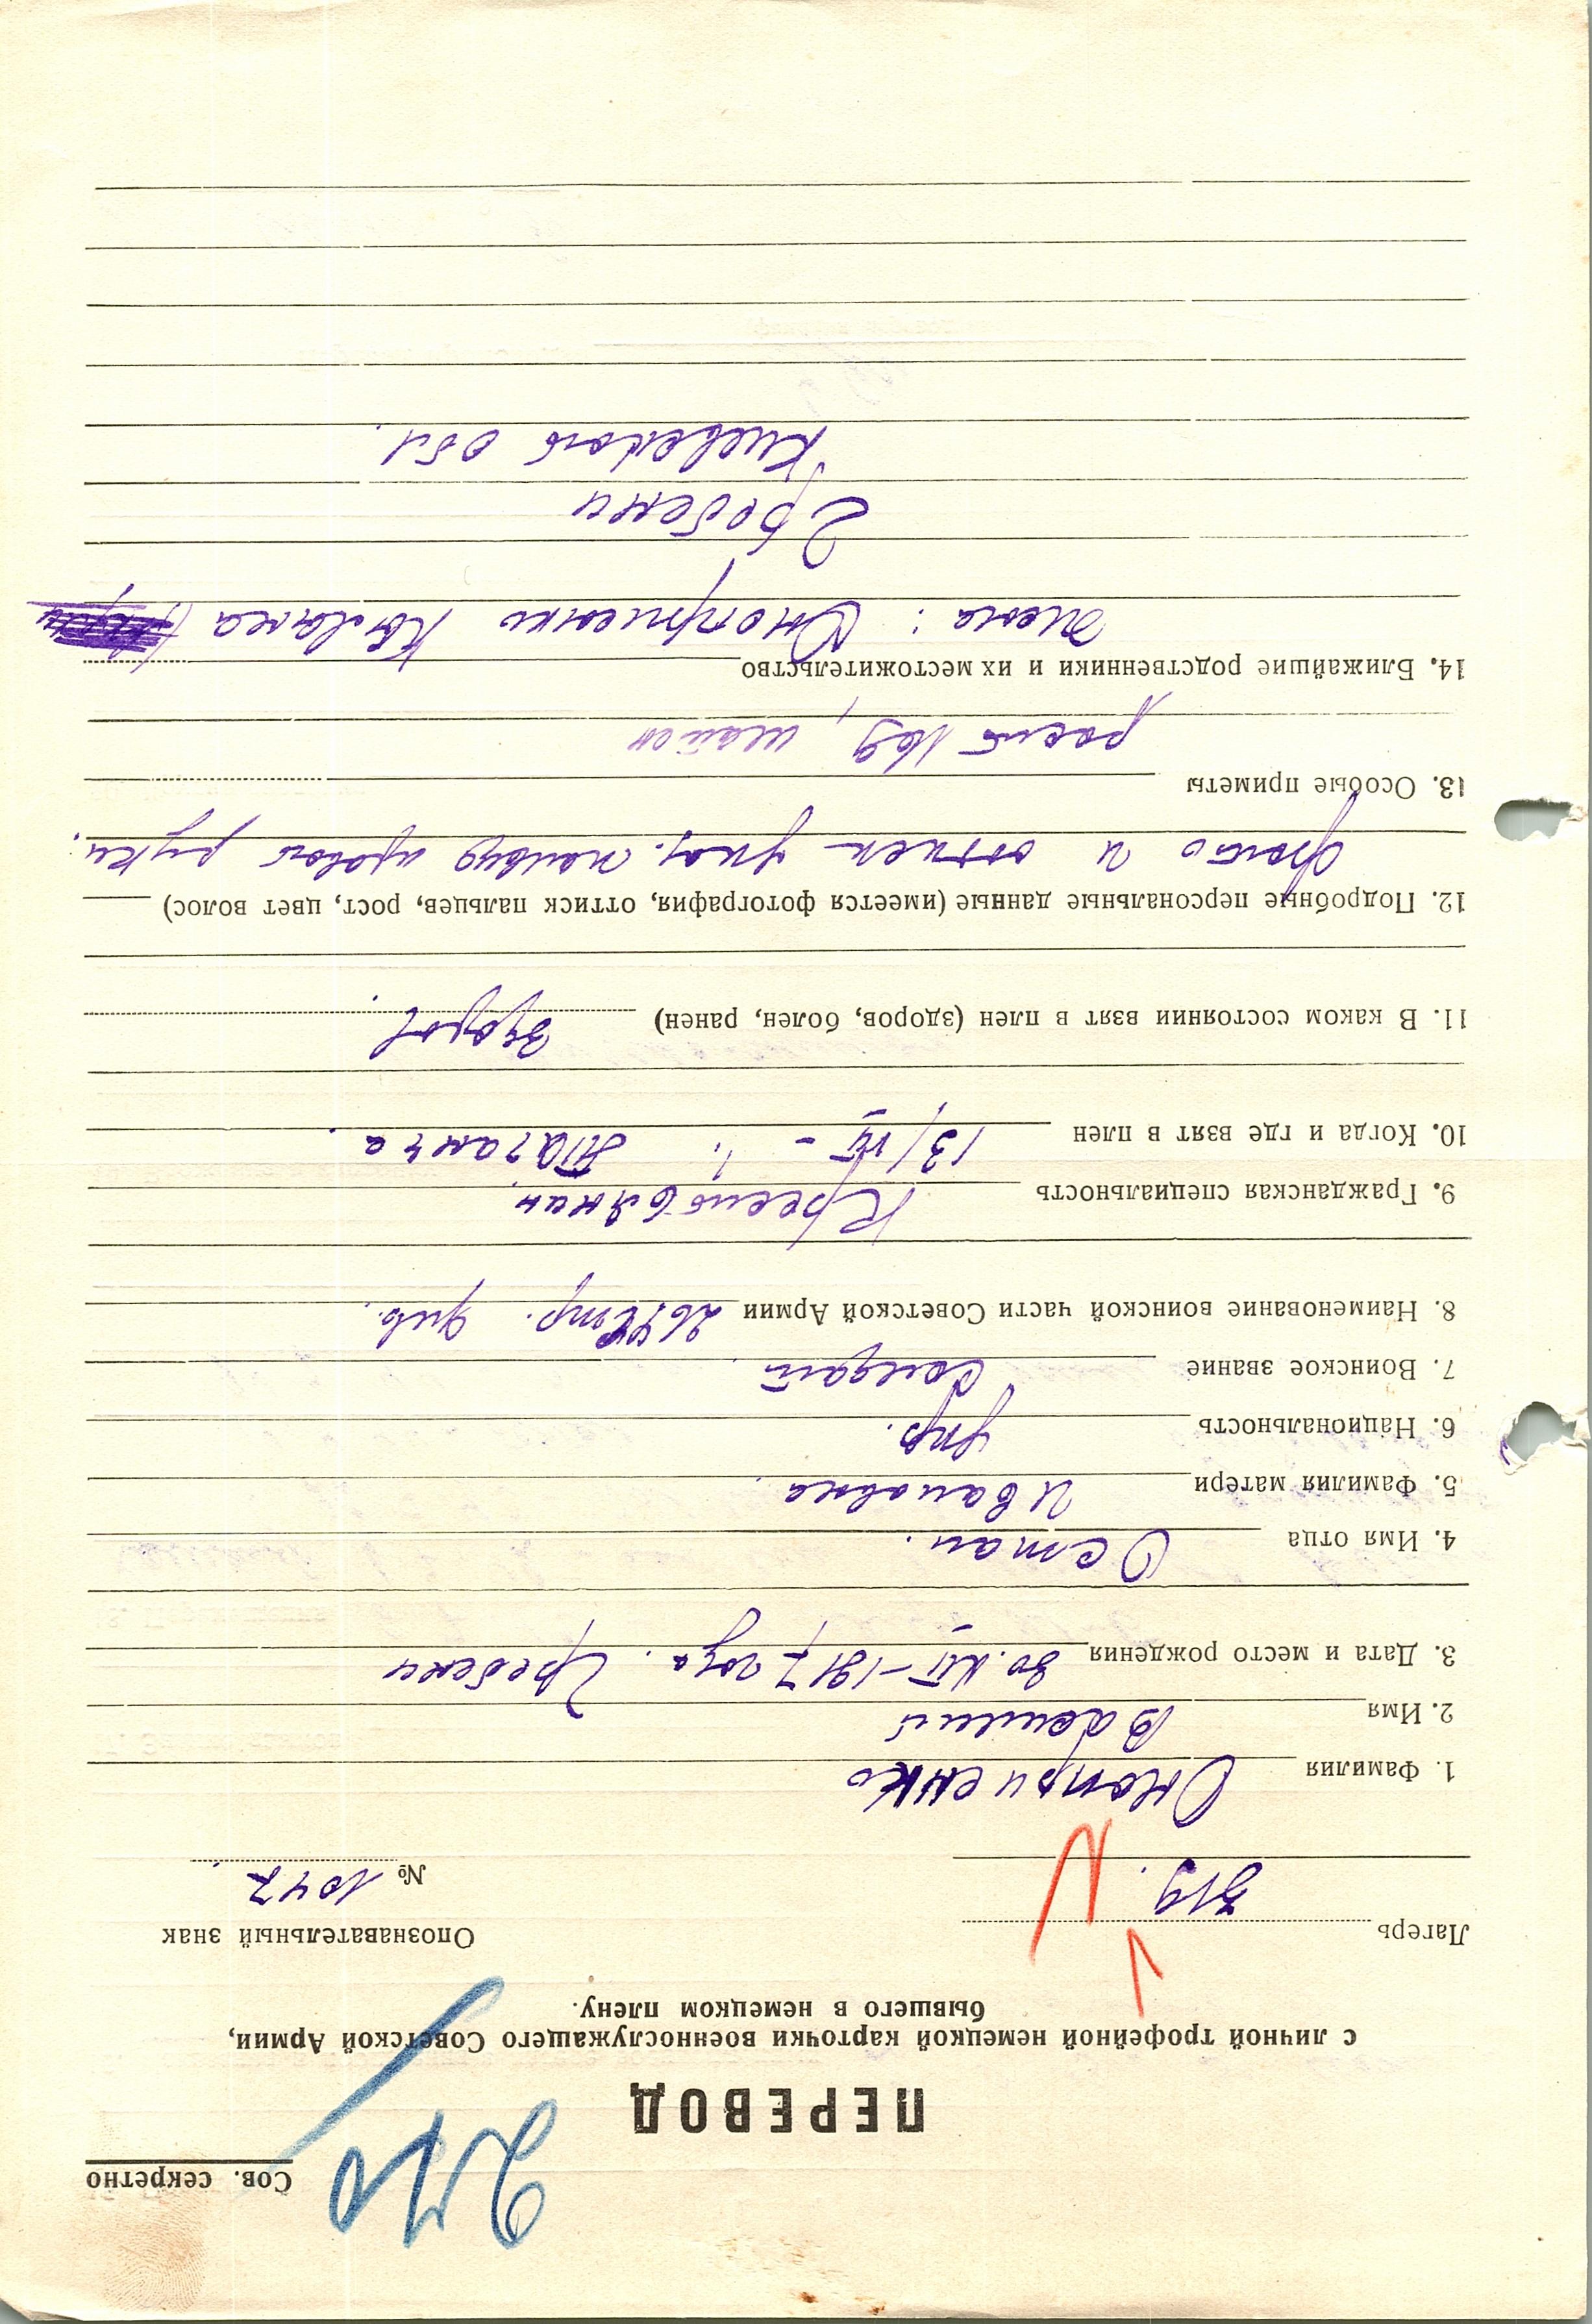 Сов. секретно
ПЕРЕВОД
с личной трофейной немецкой карточки военнослужащего Советской Армии,
бывшего в немецком плену.
Лагерь 319.
Опознавательный знак
№ 1047.
1. Фамилия Оноприенко
2. Имя Василий
3. Дата и место рождения 30. XII-1917 года. Гребени
4. Имя отца Остап.
5. Фамилия матери Ивановна.
6. Национальность укр.
7. Воинское звание Солдат
8. Наименование воинской части Советской Армии 264 стр. див.
9. Гражданская специальность Крестьянин.
10. Когда и где взят в плен 13/VIII - Таганча.
11. В каком состоянии взят в плен (здоров, болен, ранен) Здоров.
12. Подробные персональные данные (имеется фотография, оттиск пальцев, рост, цвет волос)
фото и оттиск указ. пальца правой руки.
13. Особые приметы
рост 169,
14. Ближайшие родственники и их местожительство
Жена: Оноприенко
Гребени
Киевской обл.